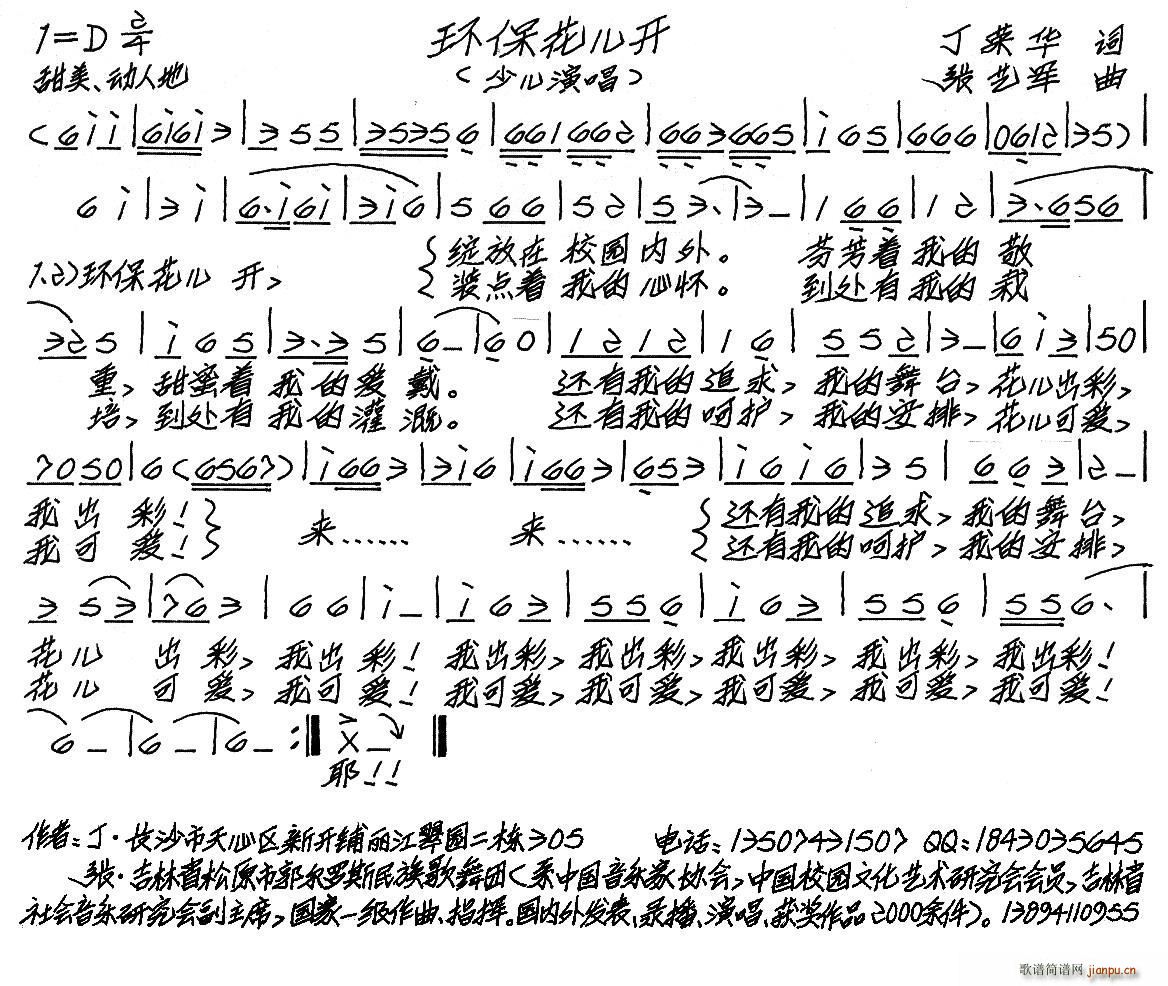 1=D 2/4 环保花儿开 丁荣华 词
甜美、动人地 （少儿演唱） 张艺军 曲
(6 i i | 6 i 6 i 3 | 3 5 5 | 3 5 3 5 6 | 6 6 1 6 6 2 | 6 6 3 6 6 5 | i 6 5 | 6 6 6 | 0 6 1 2 | 3 5) |
6 i | 3 i | 6· i 6 i | 3 i 6 | 5 6 6 | 5 2 | 5 3· | 3 – | 1 6 6 | 1 2 | 3· 6 5 6 |
绽放在 校园内外。 芬芳着我的 敬
1.2)环保花儿 开，
装点着 我的心怀。 到处有我的 栽
3 2 5 | i 6 5 | 3· 3 5 | 6 – | 6 0 | 1 2 1 2 | 1 6 | 5 5 2 | 3 – | 6 i 3 | 5 0 |
重，甜蜜着 我 的 爱 戴。 还有我的追求，我的舞 台，花儿出彩，
培，到处有 我 的 灌 溉。 还有我的呵护，我的安排，花儿可爱，
7 0 5 0 | 6 (6 5 6 7) | i 6 6 3 | 3 i 6 | i 6 6 3 | 6 5 3 | i 6 i 6 | 3 5 | 6 6 3 | 2 – |
我 出 彩！ 来…… 来…… 还有我的追求，我的舞台，
我 可 爱！ 还有我的呵护，我的安排，
3 5 3 | 7 6 3 | 6 6 | i – | i 6 3 | 5 5 6 | i 6 3 | 5 5 6 | 5 5 6· |
花儿 出 彩，我出彩！我出彩，我出彩，我出彩，我出彩，我出彩！
花儿 可 爱，我可爱！我可爱，我可爱，我可爱，我可爱，我可爱！
6 – | 6 – | 6 – :‖ X – ‖
耶！！
作者：丁·长沙市天心区新开铺丽江翠园二栋305 电话：13507431507 QQ：1843035645
张·吉林省松原市郭尔罗斯民族歌舞团（系中国音乐家协会，中国校园文化艺术研究会会员，吉林省
社会音乐研究会副主席，国家一级作曲、指挥。国内外发表、录播、演唱、获奖作品2000余件）。13894110955
歌谱简谱网 jianpu.cn